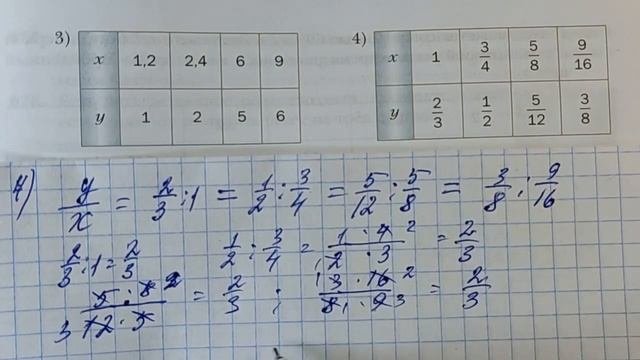 3)
x 1,2 2,4 6 9
y 1 2 5 6
4)
x 1 3/4 5/8 9/16
y 2/3 1/2 5/12 3/8
4) y/x = 2/3 : 1 = 1/2 : 3/4 = 5/12 : 5/8 = 3/8 : 9/16
2/3 : 1 = 2/3 1/2 : 3/4 = 1 · 4 2 / 1 2 · 3 = 2/3
5 · 8 2 / 3 12 · 5 = 2/3 ; 1 3 · 16 2 / 8 1 · 9 3 = 2/3